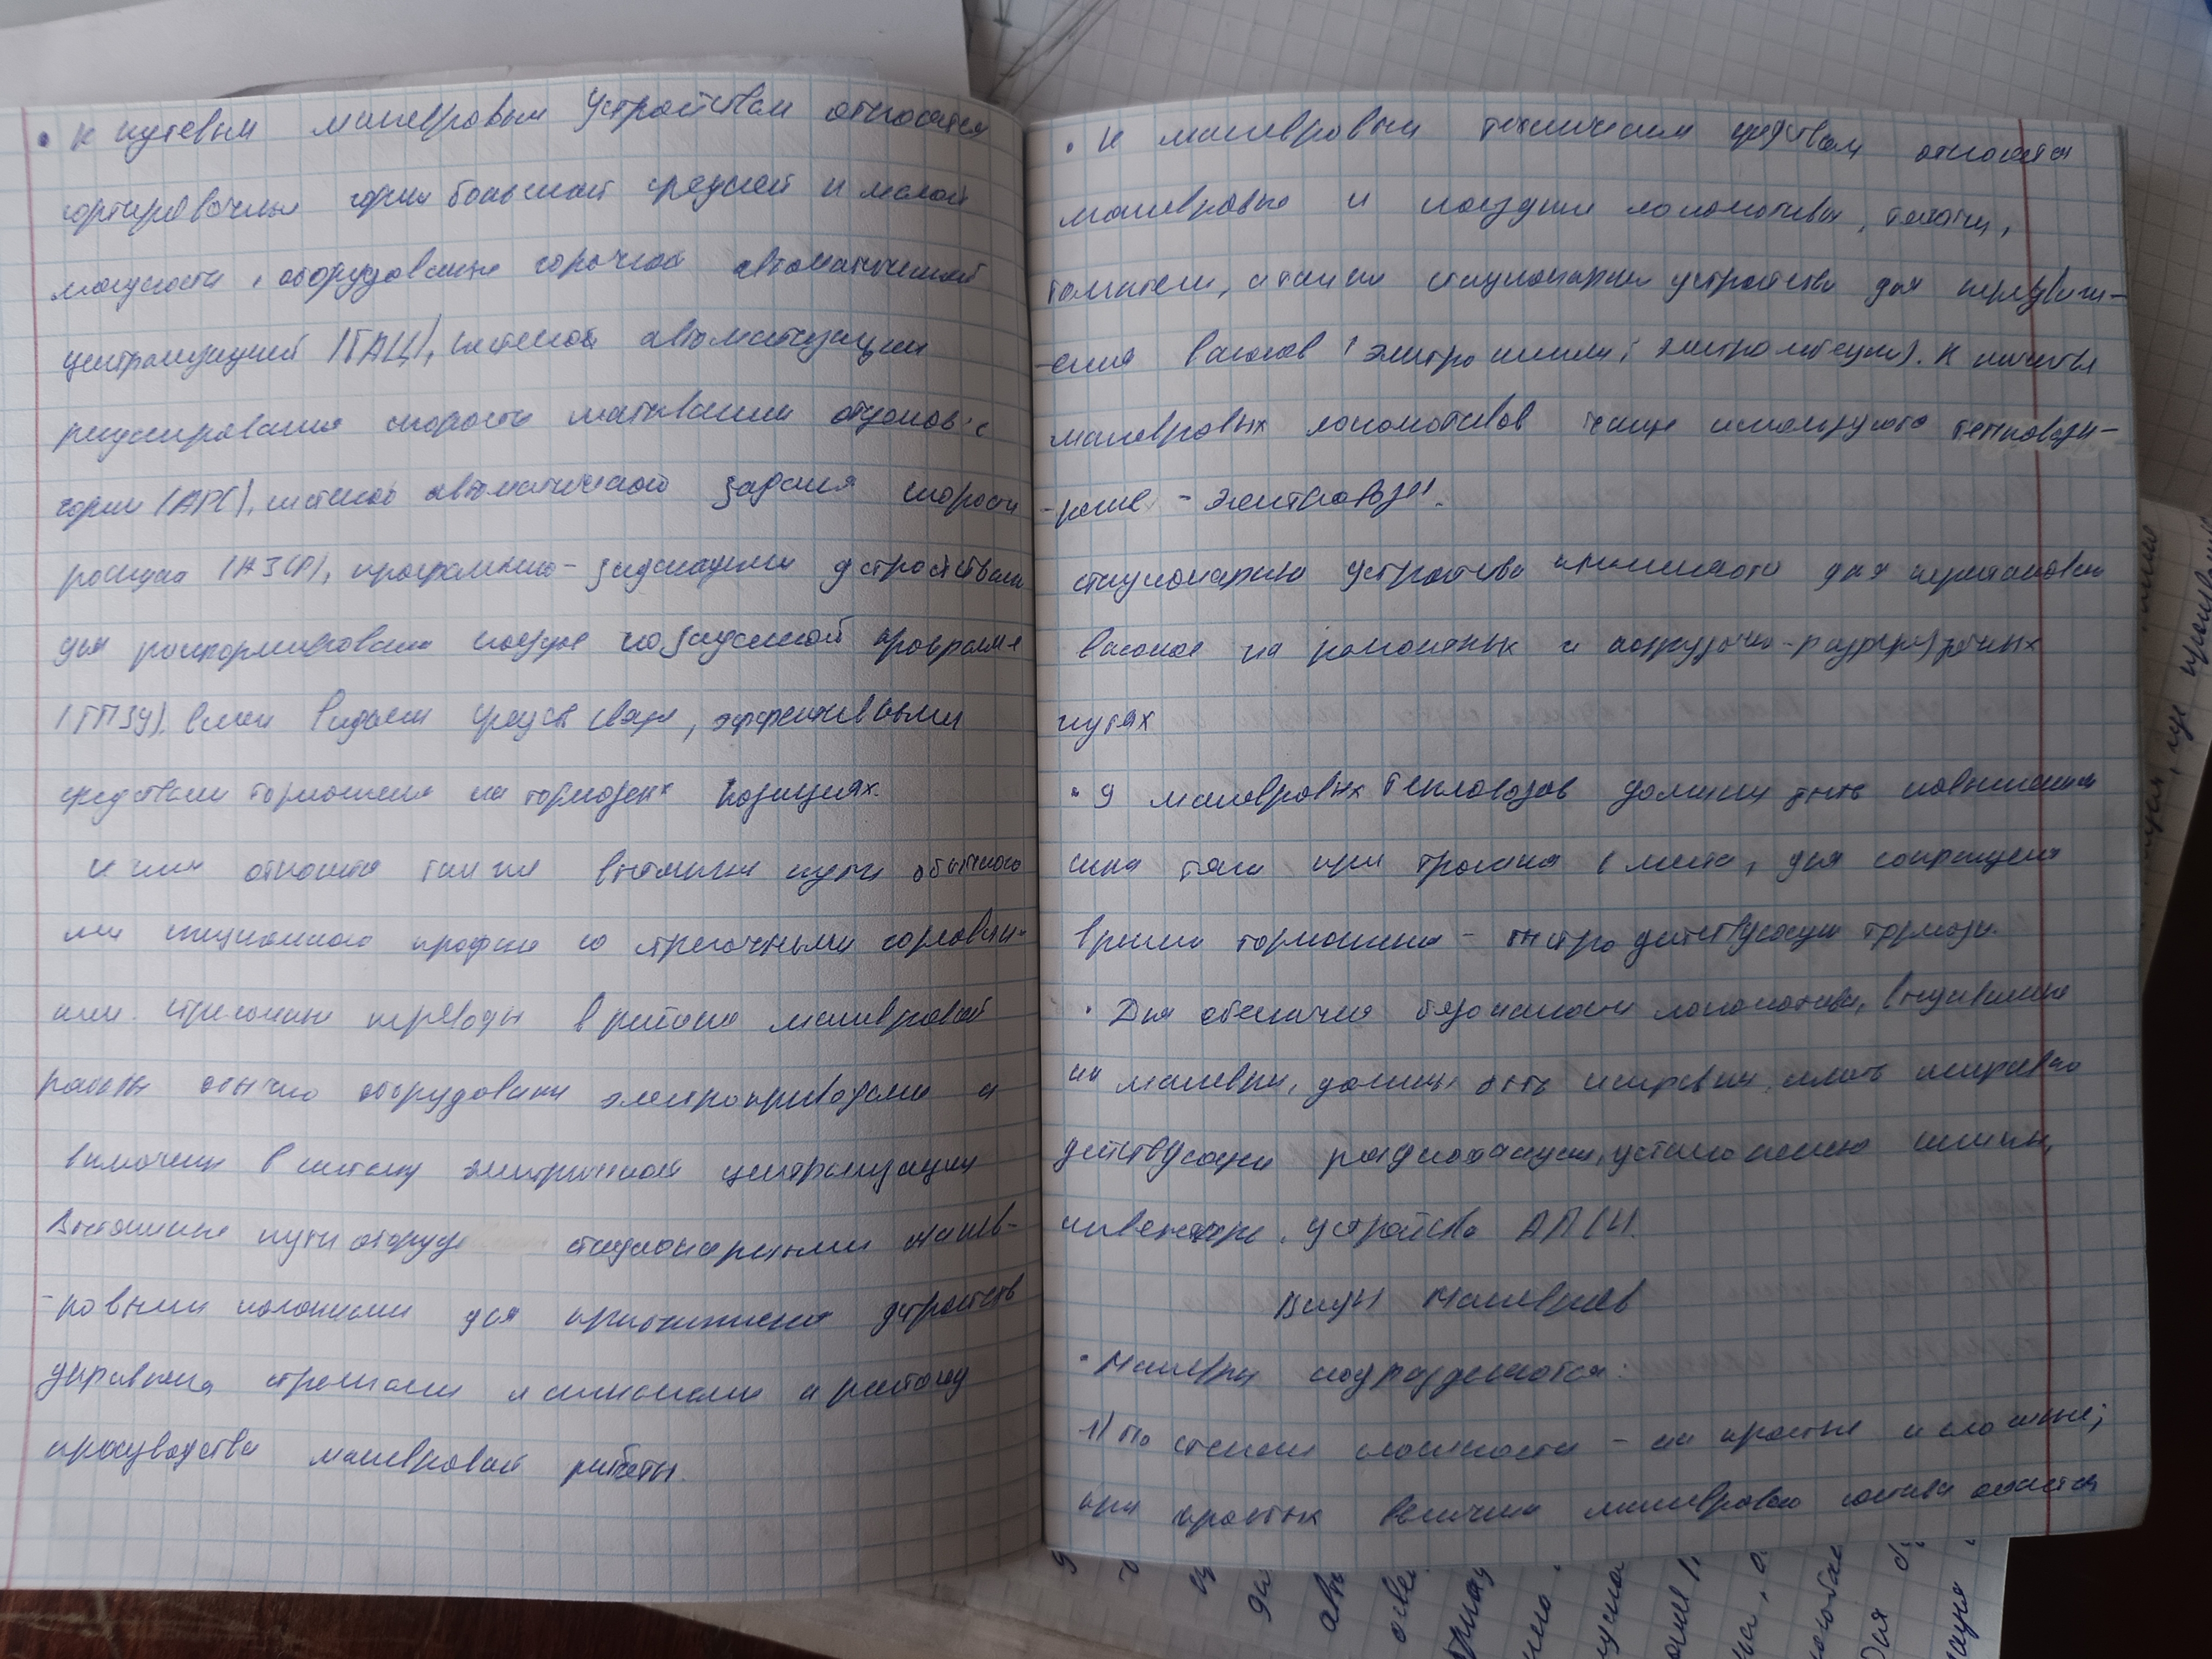 • К путевым маневровым устройствам относятся
сортировочные горки большой средней и малой
мощности, оборудованные горочной автоматической
централизацией (ГАЦ), системой автоматизации
регулирования скорости скатывания отцепов с
горки (АРС), системой автоматического задания скорости
роспуска (АЗСР), программно-задающими устройствами
для расформирования поездов по заданной программе
(ГПЗУ), всеми видами средств связи, эффективными
средствами торможения на тормозных позициях.
К ним относятся также вытяжные пути обычного
или специального профиля со стрелочными горловин-
ами. Стрелочные переводы в районе маневровой
работы обычно оборудованы электроприводами и
включены в систему электрической централизации
Вытяжные пути оборуд стационарными манев-
-ровыми колонками для приближения устройств
управления стрелками и сигналами к району
производства маневровой работы.
• К маневровым техническим средствам относятся
маневровые и поездные локомотивы, тягачи,
толкатели, а также стационарные устройства для передвиж-
-ения вагонов (электрошпили, электролебедки). К качестве
маневровых локомотивов чаще используются тепловозы-
-реже - электровозы.
стационарные устройства применяются для перестановки
вагонов на ремонтных и погрузочно-разгрузочных
путях
• У маневровых тепловозов должны быть повышенная
сила тяги при трогании с места, для сокращения
времени торможения - быстродействующие тормоза.
• Для обеспечения безопасности локомотивы, выдаваемые
на маневры, должны быть исправны, иметь исправно
действующие радиостанции, установленную
инвентарь, устройства АЛСН.
Виды маневров
• Маневры подразделяются:
1) По степени сложности - на простые и сложные;
при простых величина маневрового состава остается